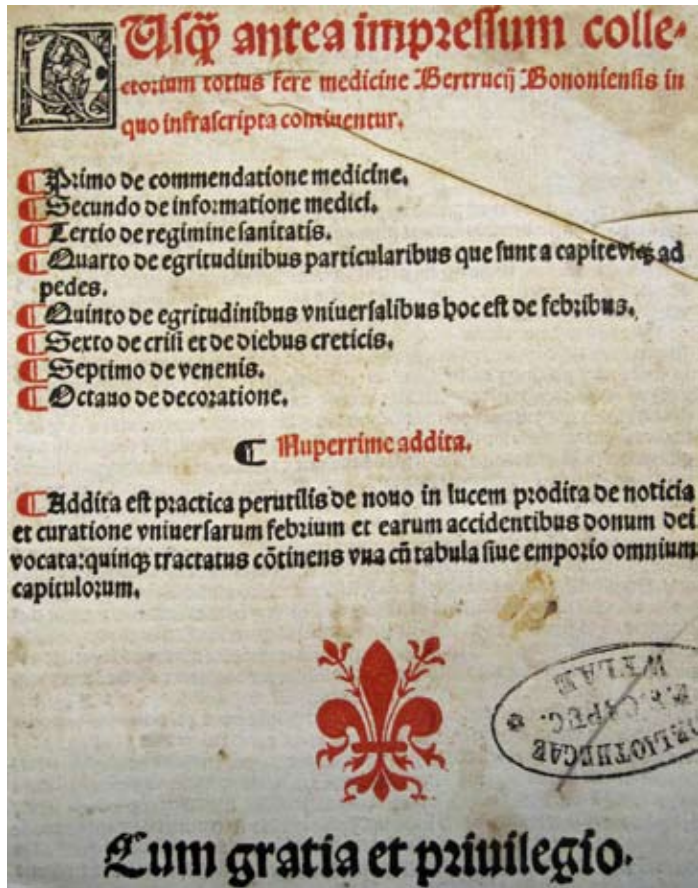 NUsq̃ antea impressum colle-
ctorium totius fere medicine Bertrucij Bononiensis in
quo infrascripta continentur.
¶Primo de commendatione medicine.
¶Secundo de informatione medici.
¶Tertio de regimine sanitatis.
¶Quarto de egritudinibus particularibus que sunt a capite vsq; ad
pedes.
¶Quinto de egritudinibus vniuersalibus hoc est de febribus.
¶Sexto de crisi et de diebus creticis.
¶Septimo de venenis.
¶Octauo de decoratione.
¶ Nuperrime addita.
¶Addita est practica perutilis de nouo in lucem prodita de noticia
et curatione vniuersarum febrium et earum accidentibus donum dei
vocata: quinq; tractatus cõtinens vna cũ tabula siue emporio omnium
capitulorum.
BIBLIOTHECAE
WYLAE
Cum gratia et priuilegio.